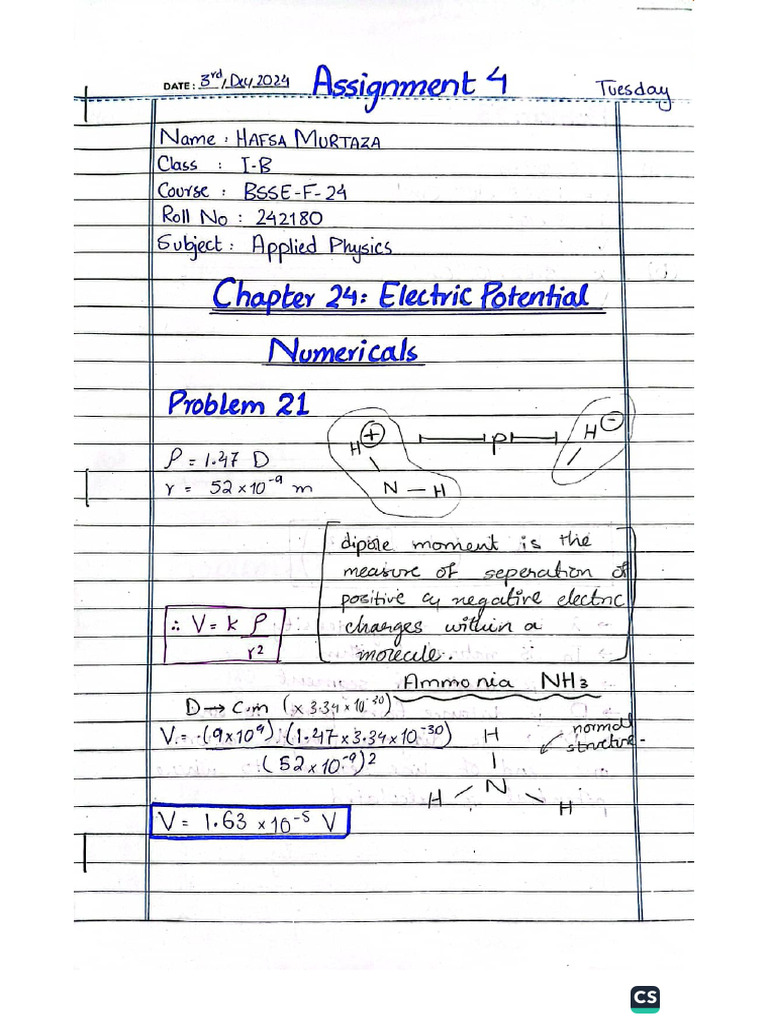 DATE: 3rd, Dec, 2024 Assignment 4 Tuesday
Name : HAFSA MURTAZA
Class : I-B
Course : BSSE-F-24
Roll No : 242180
Subject : Applied Physics
Chapter 24: Electric Potential
Numericals
Problem 21
H + P H -
P = 1.47 D
r = 52 × 10⁻⁹ m N — H
dipole moment is the
measure of seperation of
positive & negative electric
charges within a
molecule.
∴ V = k P / r²
Ammonia NH₃
D → C.m (× 3.34 × 10⁻³⁰)
V = (9×10⁹) (1.47 × 3.34 × 10⁻³⁰) / (52 × 10⁻⁹)²
normal
structure
H
N
H H
V = 1.63 × 10⁻⁵ V
CS